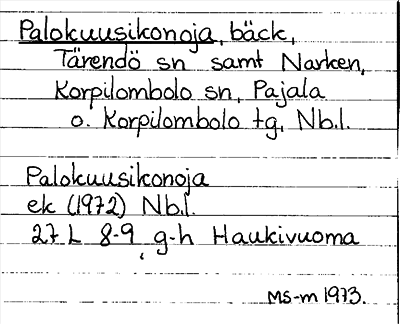 Palokuusikonoja, bäck,
Tärendö sn samt Narken,
Korpilombolo sn, Pajala
o. Korpilombolo tg, Nb.l.
Palokuusikonoja
ek (1972) Nb.l.
27 L 8-9, g-h Haukivuoma
MS-m 1973.